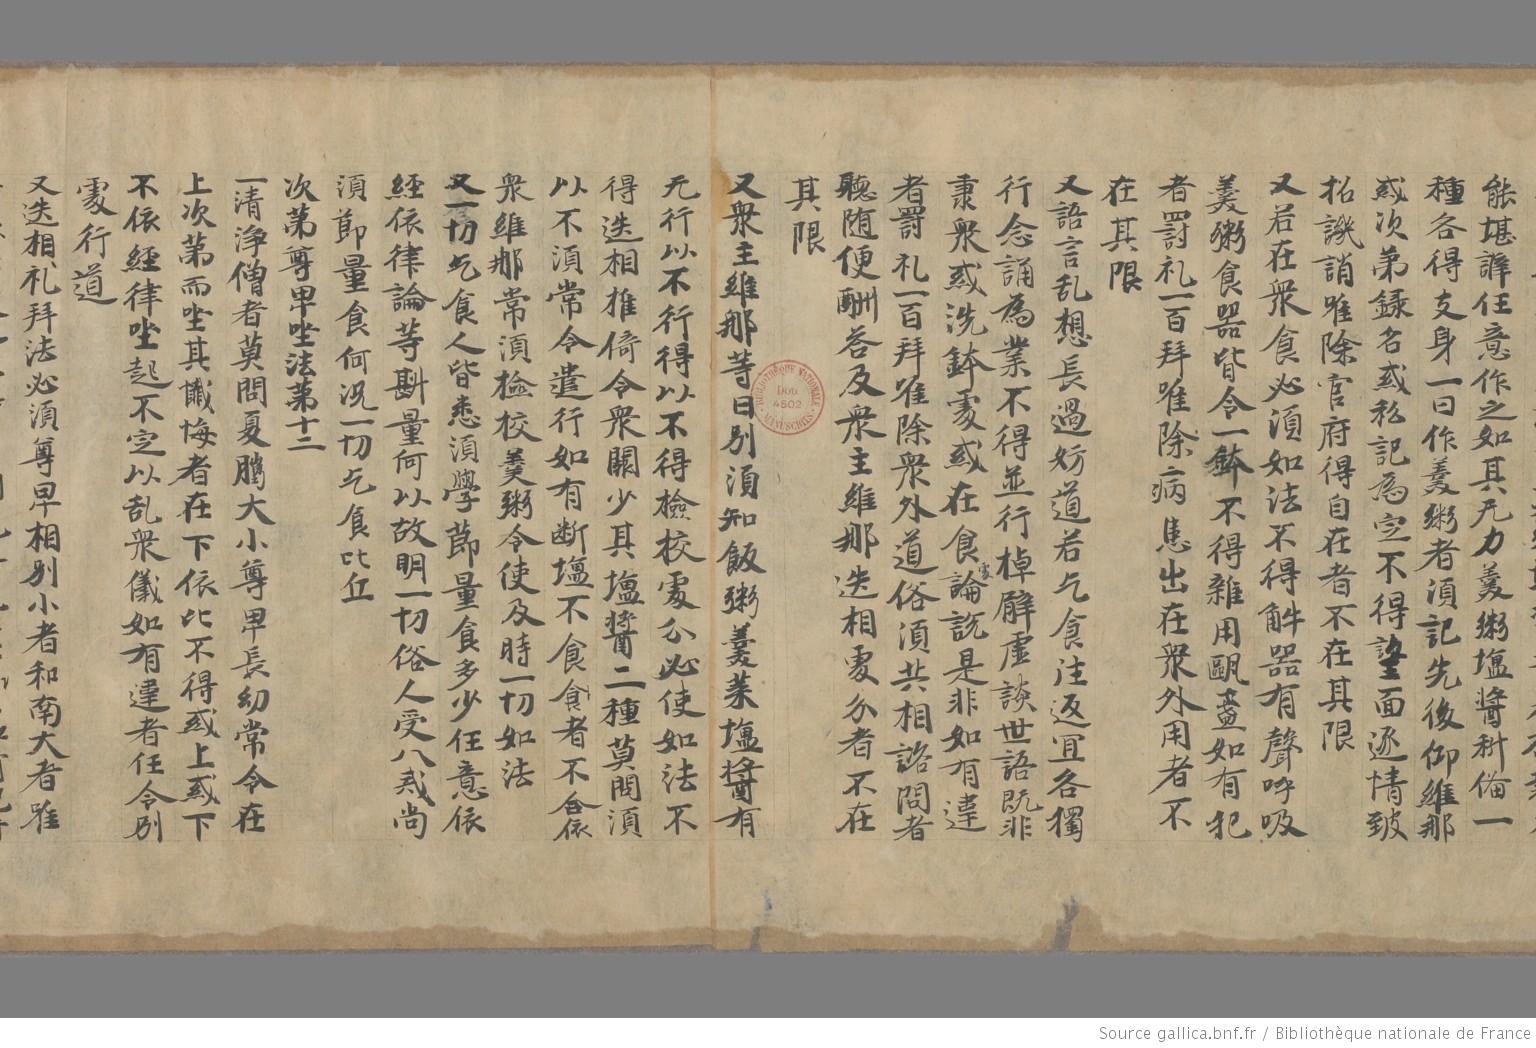 能堪誰任意作之如其无力羹粥塩醬科俻一
種各得支身一日作羹粥者湏記先後仰維那
或次第録名或私記為定不得望面逐情致
招譏誚唯除官府得自在者不在其限
又若在衆食必湏如法不得觧器有聲呼吸
羹粥食器皆令一鉢不得雜用甌盞如有犯
者罸礼一百拜唯除病患出在衆外用者不
在其限
又語言乱想長過妨道若乞食注返冝各獨
行念誦為業不得並行棹臂虛談世語既非
秉衆或洗鉢處或在食處論説是非如有違
者罸礼一百拜唯除衆外道俗湏共相諮問者
聽随便酬荅及衆主維那迭相處分者不在
其限
又衆主維那等日別湏知飯粥羹菜塩醬有
无行以不行得以不得檢校處分必使如法不
得迭相推倚令衆闕少其塩醬二種莫問湏
以不湏常令遣行如有断塩不食食者不合依
衆維那常湏檢校羹粥令使及時一切如法
又一切乞食人皆悉湏學莭量食多少任意依
經依律論等斟量何以故明一切俗人受八戒尚
湏莭量食何况一切乞食比丘
次第尊卑坐法第十二
一清浄僧者莫問夏臈大小尊卑長幼常令在
上次第而坐其懺悔者在下依比不得或上或下
不依經律坐起不定以乱衆儀如有違者任令別
處行道
又迭相礼拜法必湏尊卑相別小者和南大者唯
BIBLIOTHÈQUE NATIONALE
Don
4502
MANUSCRITS
Source gallica.bnf.fr / Bibliothèque nationale de France